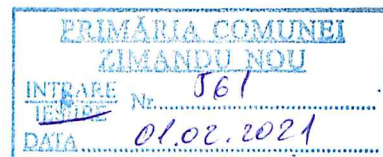 PRIMĂRIA COMUNEI
ZIMANDU NOU
INTRARE
IEȘIRE Nr. 561
DATA 01.02.2021